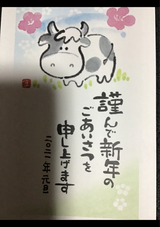 謹んで新年の
ごあいさつを
申し上げます
二〇二一年元旦